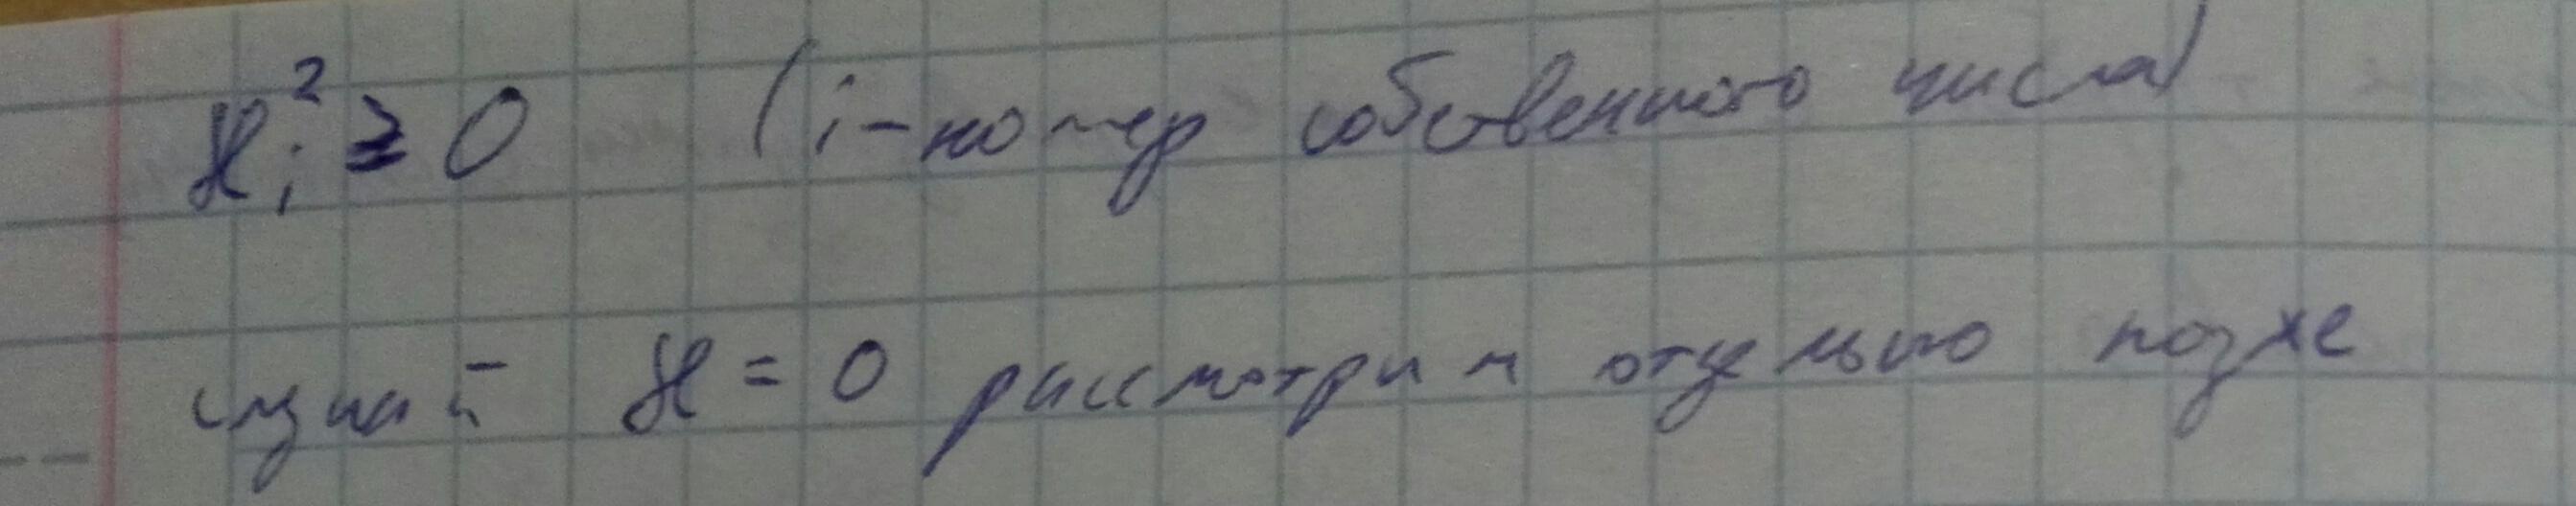 ϰᵢ² ≥ 0 (i - номер собственного числа)
случай ϰ = 0 рассмотрим отдельно позже